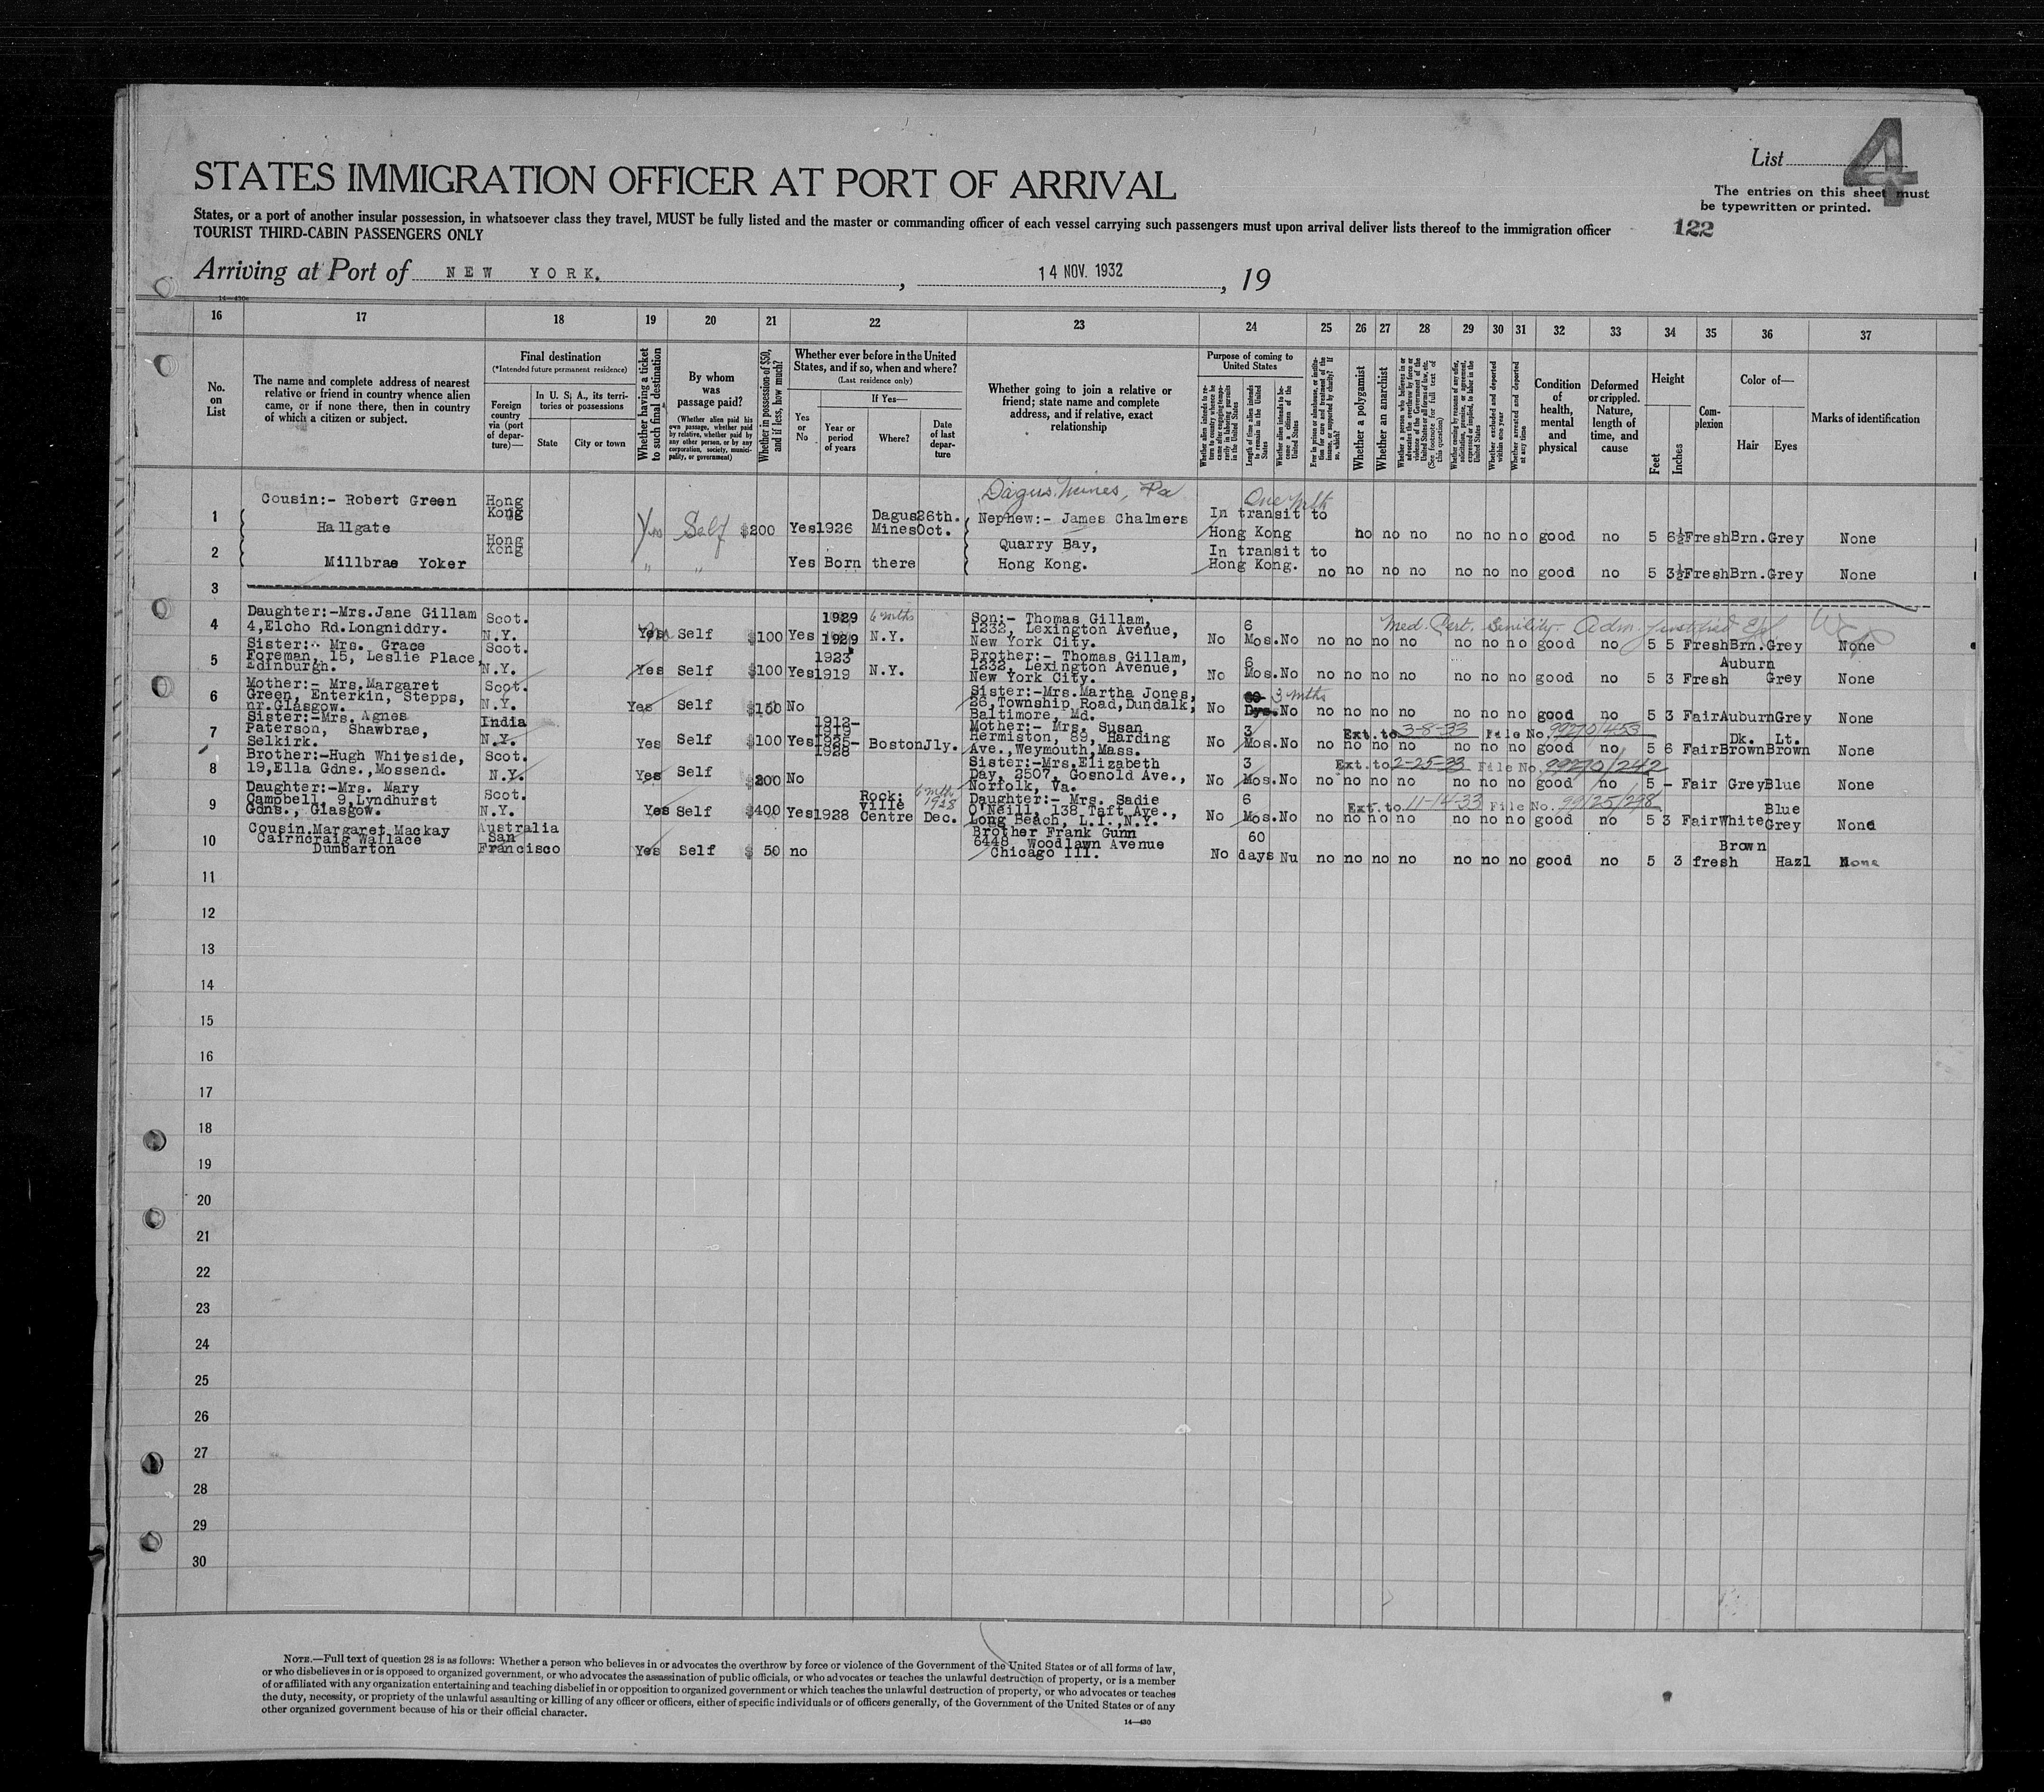 List 4
STATES IMMIGRATION OFFICER AT PORT OF ARRIVAL
The entries on this sheet must
be typewritten or printed.
States, or a port of another insular possession, in whatsoever class they travel, MUST be fully listed and the master or commanding officer of each vessel carrying such passengers must upon arrival deliver lists thereof to the immigration officer
122
TOURIST THIRD-CABIN PASSENGERS ONLY
Arriving at Port of NEW YORK. , 14 NOV. 1932 , 19
14—430
16 17 18 19 20 21 22 23 24 25 26 27 28 29 30 31 32 33 34 35 36 37
No. on List
The name and complete address of nearest relative or friend in country whence alien came, or if none there, then in country of which a citizen or subject.
Final destination
(*Intended future permanent residence)
Foreign country via (port of departure)—
In U. S. A., its territories or possessions
State
City or town
Whether having a ticket to such final destination
By whom was passage paid?
(Whether alien paid his own passage, whether paid by relative, whether paid by any other person, or by any corporation, society, municipality, or government)
Whether in possession of $50, and if less, how much?
Whether ever before in the United States, and if so, when and where?
(Last residence only)
Yes or No
If Yes—
Year or period of years
Where?
Date of last departure
Whether going to join a relative or friend; state name and complete address, and if relative, exact relationship
Purpose of coming to United States
Whether alien intends to return to country whence he came after engaging temporarily in laboring pursuits in the United States
Length of time alien intends to remain in the United States
Whether alien intends to become a citizen of the United States
Ever in prison or almshouse, or institution for care and treatment of the insane, or supported by charity? If so, which?
Whether a polygamist
Whether an anarchist
Whether a person who believes in or advocates the overthrow by force or violence of the Government of the United States or all forms of law, etc. (See footnote for full text of this question)
Whether coming by reasons of any offer, solicitation, promise, or agreement, expressed or implied, to labor in the United States
Whether excluded and deported within one year
Whether arrested and deported at any time
Condition of health, mental and physical
Deformed or crippled. Nature, length of time, and cause
Height
Feet
Inches
Complexion
Color of—
Hair
Eyes
Marks of identification
Dagus Mines, Pa
One mth
1 Cousin:- Robert Green Hallgate Hong Kong Yes Self $200 Yes 1926 Dagus Mines 26th. Oct. Nephew:- James Chalmers In transit to Hong Kong no no no no no no good no 5 6½ Fresh Brn. Grey None
2 Millbrae Yoker Hong Kong " " Yes Born there Quarry Bay, Hong Kong. In transit to Hong Kong. no no no no no no no good no 5 3½ Fresh Brn. Grey None
3
Med. Cert. Senility- Adm.
4 Daughter:-Mrs.Jane Gillam 4,Elcho Rd.Longniddry. Scot. N.Y. Yes Self $100 Yes 1929 1929 6 mths N.Y. Son:- Thomas Gillam, 1232, Lexington Avenue, New York City. No 6 Mos. No no no no no no no no good no 5 5 Fresh Brn. Grey None
5 Sister:- Mrs. Grace Foreman, 15, Leslie Place, Edinburgh. Scot. N.Y. Yes Self $100 Yes 1923 1919 N.Y. Brother:- Thomas Gillam, 1232, Lexington Avenue, New York City. No 6 Mos. No no no no no no no no good no 5 3 Fresh Auburn Grey None
6 Mother:- Mrs.Margaret Green, Enterkin, Stepps, nr.Glasgow. Scot. N.Y. Yes Self $150 No Sister:-Mrs.Martha Jones, 26,Township Road,Dundalk, Baltimore, Md. No 60 Dys. 3 mths No no no no no no no no good no 5 3 Fair Auburn Grey None
7 Sister:-Mrs. Agnes Paterson, Shawbrae, Selkirk. India N.Y. Yes Self $100 Yes 1912- 1919 1925- 1928 Boston Jly. Mother:- Mrs. Susan Hermiston, 89, Harding Ave.,Weymouth,Mass. No 3 Mos. No Ext. to 3-8-33 File No. 99270/453 no no no no no no no good no 5 6 Fair Dk. Brown Lt. Brown None
8 Brother:-Hugh Whiteside, 19,Ella Gdns.,Mossend. Scot. N.Y. Yes Self $200 No Sister:-Mrs.Elizabeth Day, 2507, Gosnold Ave., Norfolk, Va. No 3 Mos. No Ext. to 2-25-33 File No. 99270/242 no no no no no no no good no 5 - Fair Grey Blue None
9 Daughter:- Mrs. Mary Campbell, 9,Lyndhurst Gdns., Glasgow. Scot. N.Y. Yes Self $400 Yes 1928 Rock: ville Centre 6 mths 1928 Dec. Daughter:- Mrs. Sadie O'Neill, 138 Taft Ave., Long Beach, L.I.,N.Y. No 6 Mos. No Ext. to 11-14-33 File No. 99125/298 no no no no no no no good no 5 3 Fair White Blue Grey None
10 Cousin Margaret Mackay Cairncraig Wallace Dumbarton Australia San Francisco Yes Self $ 50 no Brother Frank Gunn 6448 Woodlawn Avenue Chicago Ill. No 60 days Nu no no no no no no no good no 5 3 fresh Brown Hazl None
11
12
13
14
15
16
17
18
19
20
21
22
23
24
25
26
27
28
29
30
NOTE.—Full text of question 28 is as follows: Whether a person who believes in or advocates the overthrow by force or violence of the Government of the United States or of all forms of law,
or who disbelieves in or is opposed to organized government, or who advocates the assassination of public officials, or who advocates or teaches the unlawful destruction of property, or is a member
of or affiliated with any organization entertaining and teaching disbelief in or opposition to organized government or which teaches the unlawful destruction of property, or who advocates or teaches
the duty, necessity, or propriety of the unlawful assaulting or killing of any officer or officers, either of specific individuals or of officers generally, of the Government of the United States or of any
other organized government because of his or their official character.
14—430